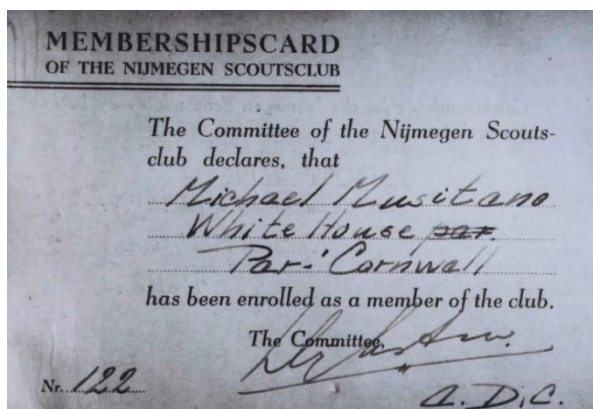 MEMBERSHIPSCARD
OF THE NIJMEGEN SCOUTSCLUB
The Committee of the Nijmegen Scouts-
club declares, that
Michael Musitano
White House par.
Par. Cornwall
has been enrolled as a member of the club.
The Committee,
Nr. 122
A. D. C.